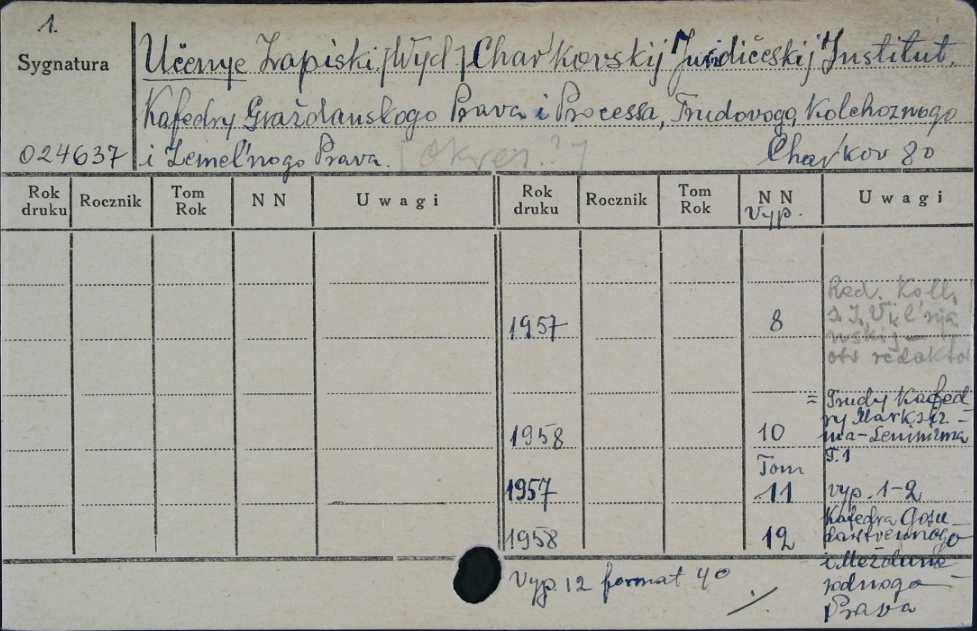 1.
Sygnatura
Učenye Zapiski. [Wyd] Char'kovskij Juridičeskij Institut.
Kafedry Graždanskogo Prava i Processa, Trudovogo, Kolchoznogo
024637 i Zemel'nogo Prava. Char'kov 8o
Rok druku Rocznik Tom Rok NN Uwagi Rok druku Rocznik Tom Rok NN Uwagi
Vyp.
Red. Koll.
1957 8
otv redaktor
= Trudy Kafed-
ry Marksiz-
1958 10 ma-Leninizma
Tom T.1
1957 11 vyp. 1-2
Kafedra Gosu-
1958 12 darstvennogo
i Mežduna-
Vyp 12 format 4o rodnogo
Prava